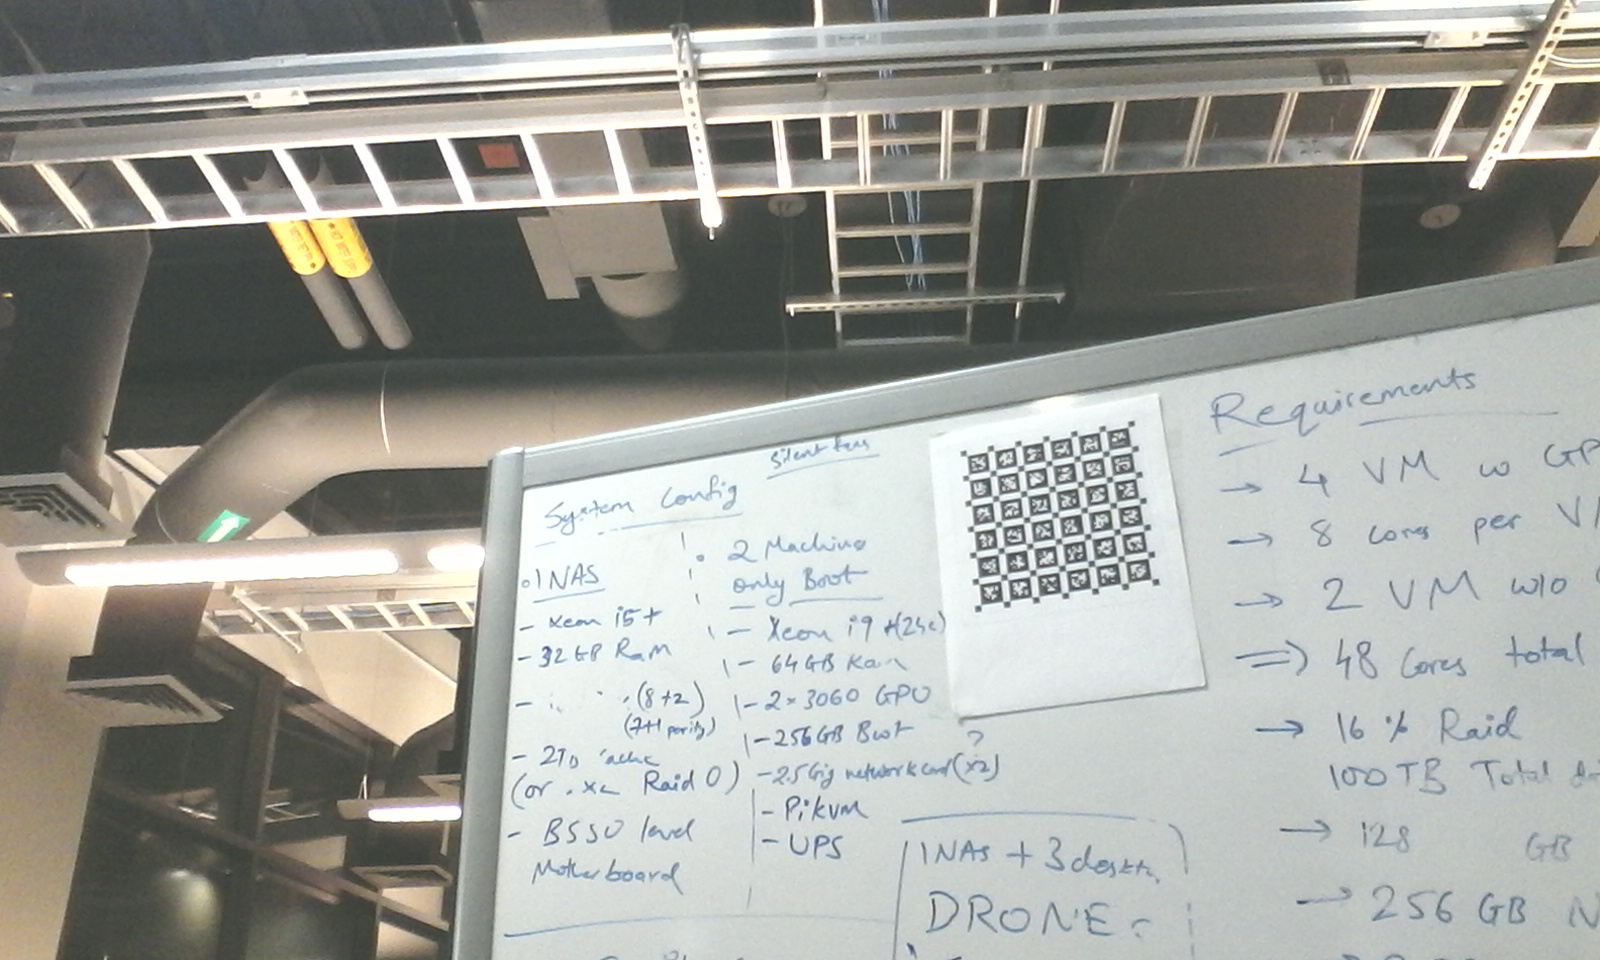 Silent fans
System Config
1 NAS
- Xeon i5+
- 32 GB Ram
- (8+2)
(7+1 parity)
- 2Tb
(or Raid 0)
- B550 level
Motherboard
2 Machine
only Boot
- Xeon i9 +(24c)
- 64GB Ram
- 2x3060 GPU
- 256GB Boot
- 2.5Gig network card (x2)
?
- Pikvm
- UPS
1NAS + 3 deskt.
DRONE
Requirements
→ 4 VM w GP
→ 8 cores per VM
→ 2 VM w/o
⇒ 48 Cores total
→ 16 % Raid
100 TB Total
→ 128 GB
→ 256 GB N